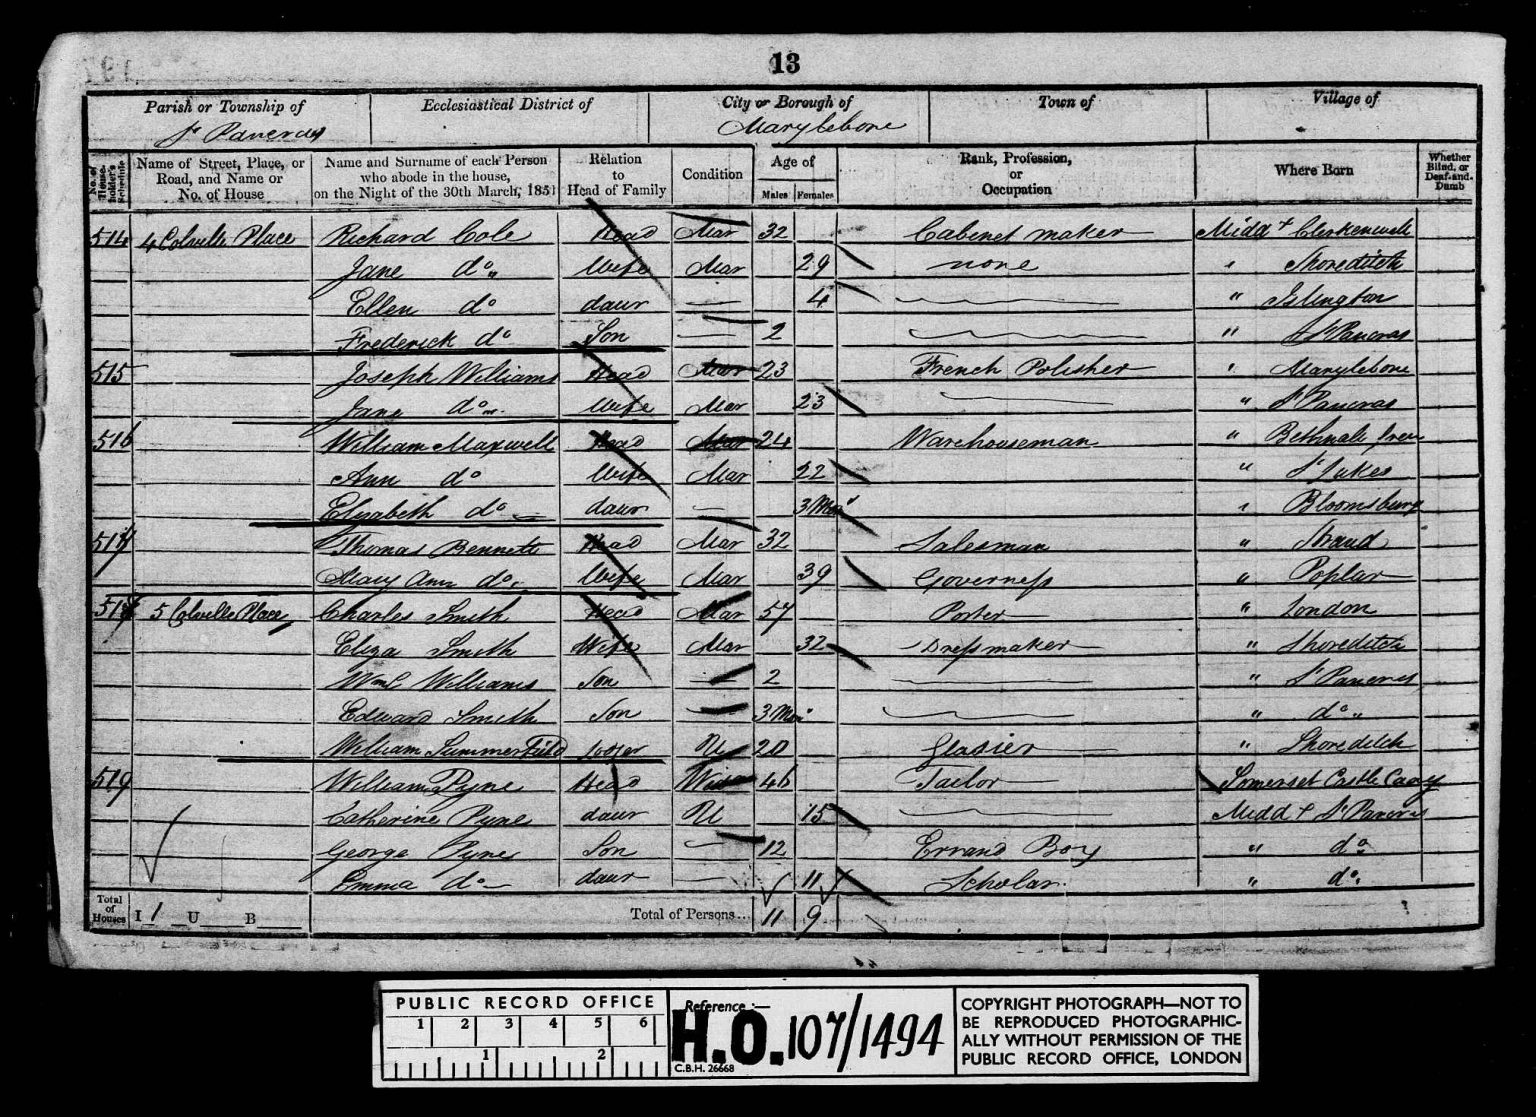 13
Parish or Township of Ecclesiastical District of City or Borough of Town of Village of
St Pancras Marylebone
No. of House-holder's Schedule Name of Street, Place, or Road, and Name or No. of House Name and Surname of each Person who abode in the house, on the Night of the 30th March, 1851 Relation to Head of Family Condition Age of Males Females Rank, Profession, or Occupation Where Born Whether Blind, or Deaf-and-Dumb
514 4 Colville Place Richard Cole Head Mar 32 Cabinet maker Midd x Clerkenwell
Jane do Wife Mar 29 none " Shoreditch
Ellen do daur — 4 " Islington
Frederick do Son — 2 " St Pancras
515 Joseph Williams Head Mar 23 French Polisher " Marylebone
Jane do Wife Mar 23 " St Pancras
516 William Maxwell Head Mar 24 Warehouseman " Bethnall Green
Ann do Wife Mar 22 " St Lukes
Elizabeth do daur — 3 Mon " Bloomsbury
517 Thomas Bennett Head Mar 32 Salesman " Strand
Mary Ann do Wife Mar 39 Governess " Poplar
518 5 Colville Place Charles Smith Head Mar 57 Porter " London
Eliza Smith Wife Mar 32 Dressmaker " Shoreditch
Wm Williams Son — 2 " St Pancras
Edward Smith Son — 3 Mon " do
William Summerfield Lodger U 20 Glasier " Shoreditch
519 William Pyne Head Wid 46 Tailor Somerset Castle Cary
Catherine Pyne daur U 15 Midd x St Pancras
George Pyne Son — 12 Errand Boy " do
Emma do daur — 11 Scholar " do
Total of Houses I 1 U B Total of Persons... 11 9
PUBLIC RECORD OFFICE
1 2 3 4 5 6
1 2
Reference :—
H.O. 107/1494
C.B.H. 26668
COPYRIGHT PHOTOGRAPH—NOT TO
BE REPRODUCED PHOTOGRAPHIC-
ALLY WITHOUT PERMISSION OF THE
PUBLIC RECORD OFFICE, LONDON